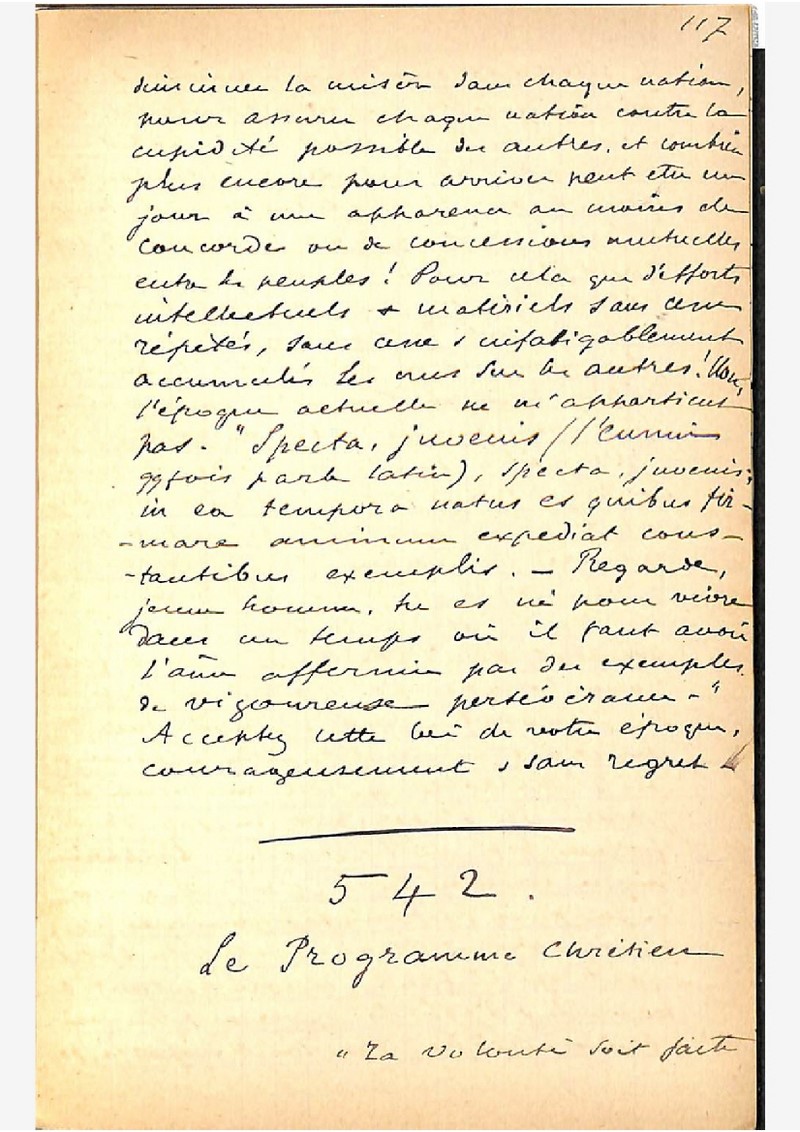 117
diminuer la misère dans chaque nation,
pour assurer chaque nation contre la
cupidité possible des autres, et combien
plus encore pour arriver peut être un
jour à une apparence au moins de
concorde ou de concessions mutuelles
entre les peuples ! Pour cela que d'efforts
intellectuels & matériels sans cesse
répétés, sans cesse & infatigablement
accumulés les uns sur les autres !
l'époque actuelle ne m'appartient
pas. " Specta, juvenis (l'ennui
qqfois parle latin), specta, juvenis,
in ea tempora natus es quibus fir-
-mare animum expediat cons-
-tantibus exemplis. — Regarde,
jeune homme, tu es né pour vivre
dans un temps où il faut avoir
l'âme affermie par des exemples
de vigoureuse persévérance - "
Acceptez cette loi de votre époque,
courageusement & sans regret
542.
Le Programme Chrétien
" Ta volonté soit faite